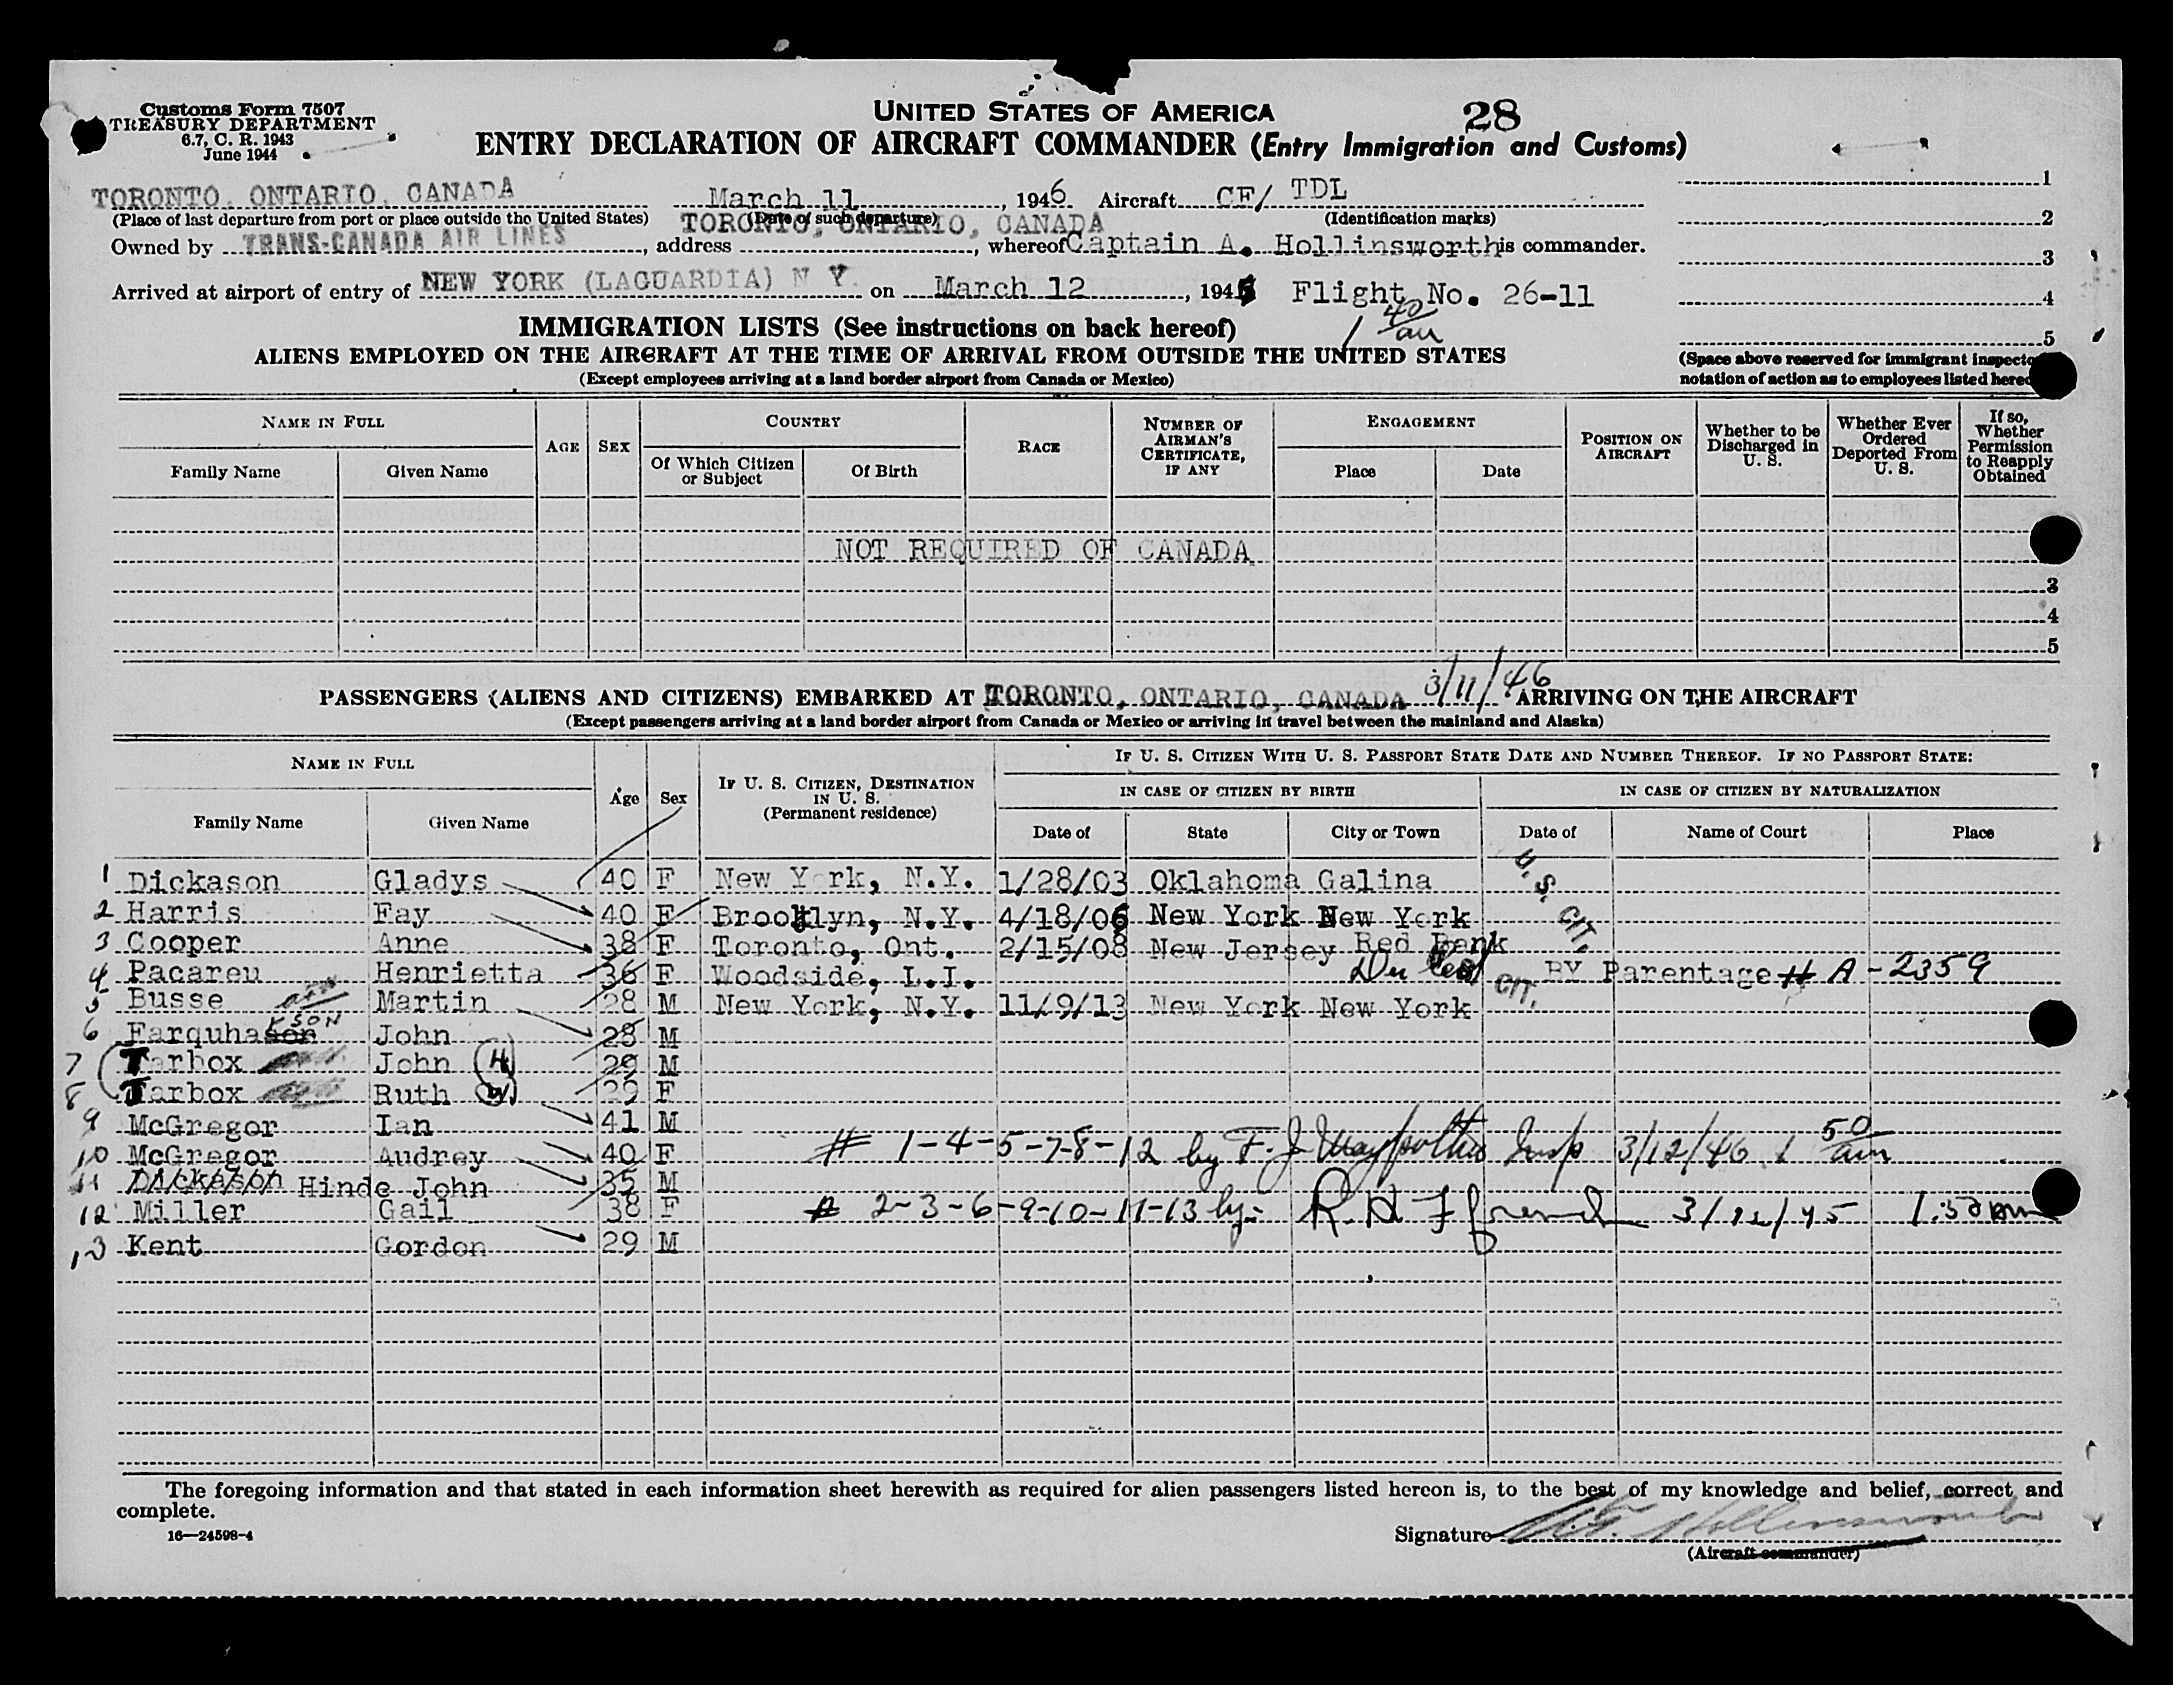 Customs Form 7507
TREASURY DEPARTMENT
6.7, C. R. 1943
June 1944
UNITED STATES OF AMERICA
28
ENTRY DECLARATION OF AIRCRAFT COMMANDER (Entry Immigration and Customs)
TORONTO, ONTARIO, CANADA March 11, 1946 Aircraft CF/ TDL 1
(Place of last departure from port or place outside the United States) (Date of such departure) (Identification marks) 2
TORONTO, ONTARIO, CANADA
Owned by TRANS-CANADA AIR LINES, address, whereof Captain A. Hollinsworth is commander.
3
Arrived at airport of entry of NEW YORK (LAGUARDIA) N Y. on March 12, 1946 Flight No. 26-11 4
1 40 am
IMMIGRATION LISTS (See instructions on back hereof)
5
ALIENS EMPLOYED ON THE AIRCRAFT AT THE TIME OF ARRIVAL FROM OUTSIDE THE UNITED STATES
(Space above reserved for immigrant inspecto
(Except employees arriving at a land border airport from Canada or Mexico)
notation of action as to employees listed hereo
NAME IN FULL AGE SEX COUNTRY RACE NUMBER OF AIRMAN'S CERTIFICATE, IF ANY ENGAGEMENT POSITION ON AIRCRAFT Whether to be Discharged in U. S. Whether Ever Ordered Deported From U. S. If so, Whether Permission to Reapply Obtained
Family Name Given Name Of Which Citizen or Subject Of Birth Place Date
NOT REQUIRED OF CANADA
3
4
5
PASSENGERS (ALIENS AND CITIZENS) EMBARKED AT TORONTO, ONTARIO, CANADA 3/11/46 ARRIVING ON THE AIRCRAFT
(Except passengers arriving at a land border airport from Canada or Mexico or arriving in travel between the mainland and Alaska)
NAME IN FULL Age Sex IF U. S. CITIZEN, DESTINATION IN U. S. (Permanent residence) IF U. S. CITIZEN WITH U. S. PASSPORT STATE DATE AND NUMBER THEREOF. IF NO PASSPORT STATE:
IN CASE OF CITIZEN BY BIRTH IN CASE OF CITIZEN BY NATURALIZATION
Family Name Given Name Date of State City or Town Date of Name of Court Place
1 Dickason Gladys 40 F New York, N.Y. 1/28/03 Oklahoma Galina
U. S. CIT.
2 Harris Fay 40 F Brooklyn, N.Y. 4/18/06 New York New York
3 Cooper Anne 38 F Toronto, Ont. 2/15/08 New Jersey Red Bank
4 Pacareu Henrietta 36 F Woodside, L.I. BY Parentage # A-2359
CIT.
5 Busse Martin 28 M New York, N.Y. 11/9/13 New York New York
6 Farquhason John 28 M
7 Tarbox John (H) 29 M
8 Tarbox Ruth (W) 29 F
9 McGregor Ian 41 M
# 1-4-5-7-8-12 by F. J. Insp 3/12/46 1 50 am
10 McGregor Audrey 40 F
11 Dickason Hinde John 35 M
12 Miller Gail 38 F
# 2-3-6-9-10-11-13 by:- R. H. 3/12/45 1:50 am
13 Kent Gordon 29 M
The foregoing information and that stated in each information sheet herewith as required for alien passengers listed hereon is, to the best of my knowledge and belief, correct and
complete.
16—24598-4
Signature
(Aircraft commander)